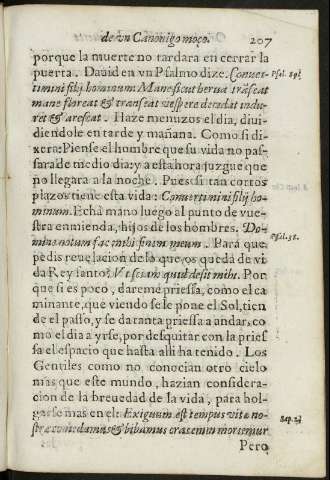 de vn Canonigo moço. 207
porque la muerte no tardara en cerrar la
puerta. Dauid en vn Psalmo dize. Conuer- Psal. 89.
timini filij hominum. Mane sicut herua trãseat
mane floreat & transeat vespere decidat indu-
ret & arescat. Haze menuzos el dia, diui-
diendole en tarde y mañana. Como si di-
xera: Piense el hombre que su vida no pas-
sara de medio dia: y a esta hora juzgue que
no llegara a la noche. Pues si tan cortos
plazos tiene esta vida: Conuertimini filij ho-
minum. Echã mano luego al punto de vue-
stra enmienda, hijos de los hombres. Do-
mine notum fac mihi finem meum. Para que Psal. 38.
pedis reuelacion de lo que os queda de vi
da Rey santo? Vt sciam quid desit mihi. Por
que si es poco, dareme priessa, como el ca
minante, que viendo se le pone el Sol, tien
de el passo, y se da tanta priessa a andar, co
mo el dia a yrse, por desquitar con la pries
sa el espacio que hasta alli ha tenido. Los
Gentiles como no conocian otro cielo
mas que este mundo, hazian considera-
cion de la breuedad de la vida, para hol-
garse mas en el: Exiguum est tempus vitæ no-
stræ comedamus & bibamus cras enim moriemur Sap. 2.
Pero